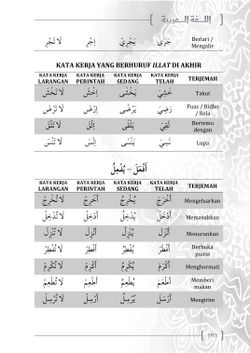 اللغة العربية
لَا تَجْرِ اِجْرِ يَجْرِيْ جَرَى Berlari / Mengalir
KATA KERJA YANG BERHURUF ILLAT DI AKHIR
KATA KERJA LARANGAN KATA KERJA PERINTAH KATA KERJA SEDANG KATA KERJA TELAH TERJEMAH
لَا تَخْشَ اِخْشَ يَخْشَى خَشِيَ Takut
لَا تَرْضَ اِرْضَ يَرْضَى رَضِيَ Puas / Ridho / Rela
لَا تَلْقَ اِلْقَ يَلْقَى لَقِيَ Bertemu dengan
لَا تَنْسَ اِنْسَ يَنْسَى نَسِيَ Lupa
أَفْعَلَ – يُفْعِلُ
KATA KERJA LARANGAN KATA KERJA PERINTAH KATA KERJA SEDANG KATA KERJA TELAH TERJEMAH
لَا تُخْرِجْ أَخْرِجْ يُخْرِجُ أَخْرَجَ Mengeluarkan
لَا تُدْخِلْ أَدْخِلْ يُدْخِلُ أَدْخَلَ Memasukkan
لَا تُنْزِلْ أَنْزِلْ يُنْزِلُ أَنْزَلَ Menurunkan
لَا تُفْطِرْ أَفْطِرْ يُفْطِرُ أَفْطَرَ Berbuka puasa
لَا تُكْرِمْ أَكْرِمْ يُكْرِمُ أَكْرَمَ Menghormati
لَا تُطْعِمْ أَطْعِمْ يُطْعِمُ أَطْعَمَ Memberi makan
لَا تُرْسِلْ أَرْسِلْ يُرْسِلُ أَرْسَلَ Mengirim